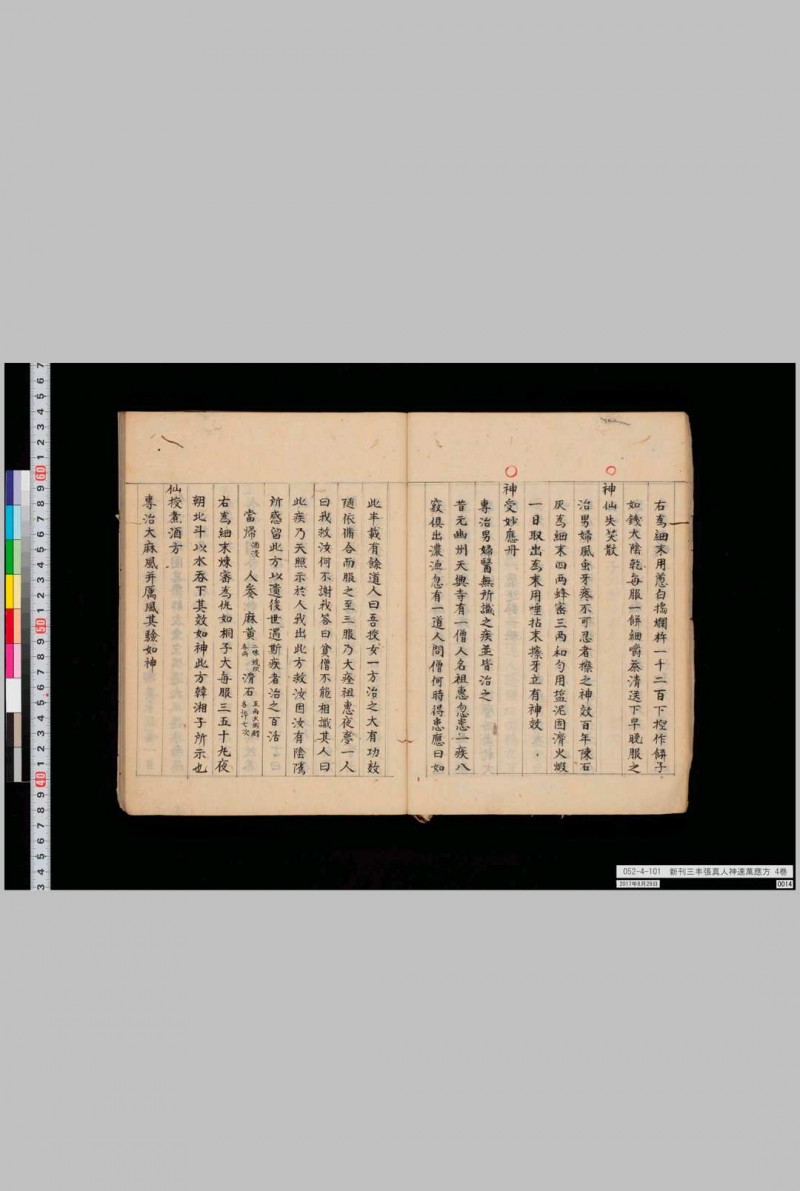 右為細末用蔥白搗爛杵一千二百下捏作餅子
如錢大陰乾每服一餅細嚼茶清送下早晚服之
神仙失笑散
治男婦風虫牙疼不可忍者擦之神效百年陳石
灰為細末四兩蜂蜜三兩和勻用塩泥固濟火煆
一日取出為末用唾拈末擦牙立有神效
神受妙應丹
專治男婦醫無所識之疾並皆治之
昔元幽州天興寺有一僧人名祖惠忽患一疾八
竅俱出濃血忽有一道人問僧何時得患應曰如
此半載有餘道人曰吾授女一方治之大有功效
隨依備合而服之至三服乃大痊祖惠夜夢一人
曰我救汝何不謝我答曰貧僧不能相識其人曰
此疾乃天照示於人我出此方救汝因汝有陰隲
所感留此方以遺後世遇斯疾者治之百活
當帰 酒浸 人參 麻黄 滑石 各淨七次
右為細末煉蜜為丸如桐子大每服三五十丸夜
朝北斗以水吞下其效如神此方韓湘子所示也
仙授煮酒方
專治大麻風并厲風其驗如神
052-4-101 新刊三丰張真人神速萬應方 4巻
2017年8月29日
0014